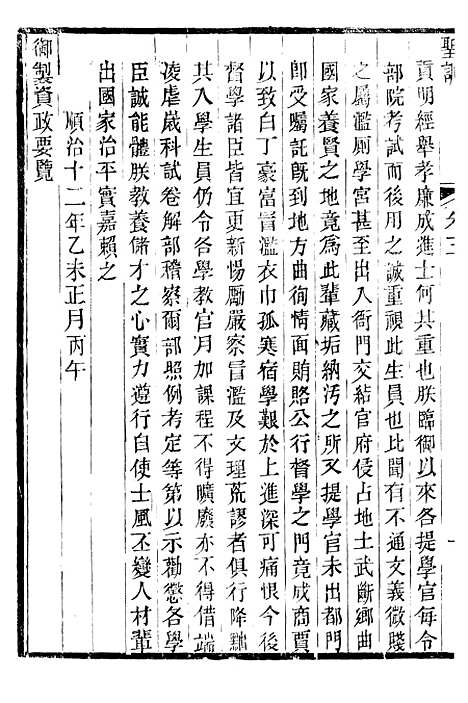 聖訓
貢明經舉孝廉成進士何其重也朕臨御以來各提學官每令
部院考試而後用之誠重視此生員也比聞有不通文義微賤
之屬濫厠學宮甚至出入衙門交結官府侵占地土武斷鄉曲
國家養賢之地竟為此輩藏垢納汚之所又提學官未出都門
卽受囑託旣到地方曲徇情面賄賂公行督學之門竟成商賈
以致白丁豪富冒濫衣巾孤寒宿學艱於上進深可痛恨今後
督學諸臣皆宜更新惕勵嚴察冒濫及文理荒謬者俱行降黜
其入學生員仍令各學教官月加課程不得曠廢亦不得借端
凌虐歲科試卷解部稽察爾部照例考定等第以示勸懲各學
臣誠能體朕教養儲才之心實力遵行自使士風丕變人材輩
出國家治平實嘉賴之
順治十二年乙未正月丙午
御製資政要覽